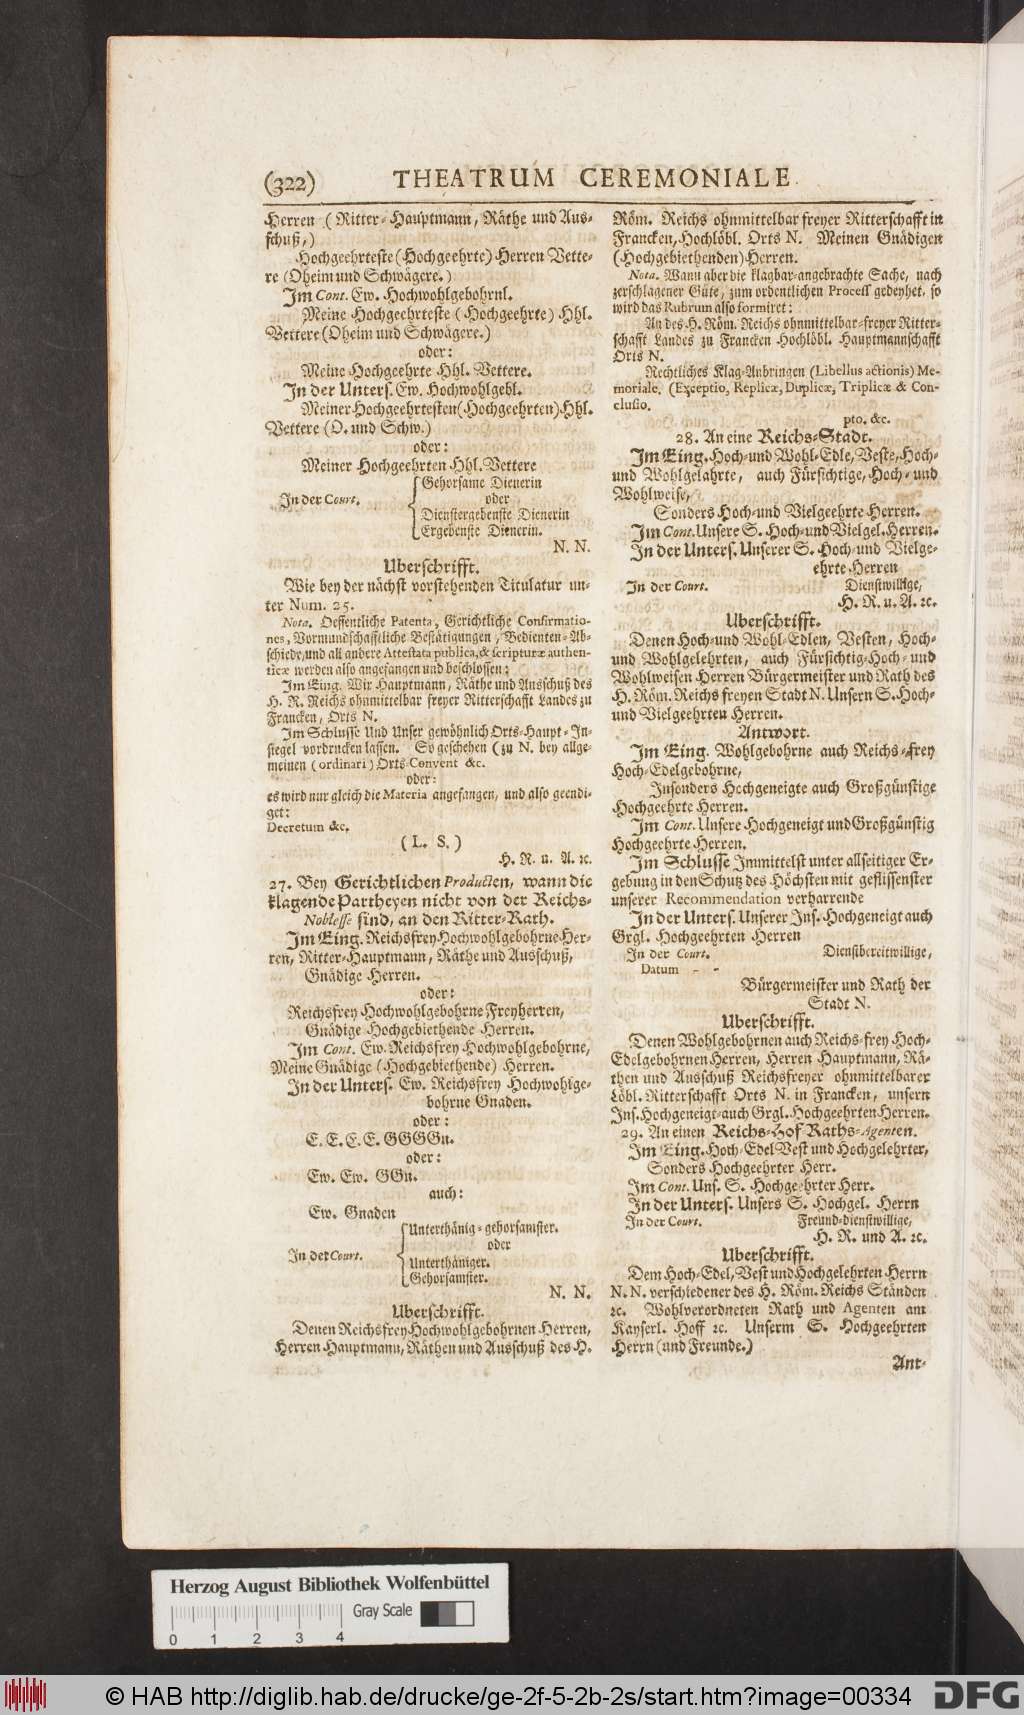 (322) THEATRUM CEREMONIALE.
Herren (Ritter-Hauptmann, Räthe und Aus-
schuß,)
Hochgeehrteste (Hochgeehrte) Herren Vette-
re (Oheim und Schwägere.)
Im Cont. Ew. Hochwohlgebohrnl.
Meine Hochgeehrteste (Hochgeehrte) Hhl.
Vettere (Oheim und Schwägere.)
oder:
Meine Hochgeehrte Hhl. Vettere.
In der Unters. Ew. Hochwohlgebl.
Meiner Hochgeehrtesten (Hochgeehrten) Hhl.
Vettere (O. und Schw.)
oder:
Meiner Hochgeehrten Hhl. Vettere
Gehorsame Dienerin
In der Court. oder
Dienstergebenste Dienerin
Ergebenste Dienerin.
N. N.
Uberschrifft.
Wie bey der nächst vorstehenden Titulatur un-
ter Num. 25.
Nota. Oeffentliche Patenta, Gerichtliche Confirmatio-
nes, Vormundschafftliche Bestätigungen, Bedienten-Ab-
schiede, und all andere Attestata publica, & scripturæ authen-
ticæ werden also angefangen und beschlossen:
Im Eing. Wir Hauptmann, Räthe und Ausschuß des
H. R. Reichs ohnmittelbar freyer Ritterschafft Landes zu
Francken, Orts N.
Im Schlusse Und Unser gewöhnlich Orts-Haupt-In-
siegel vordrucken lassen. So geschehen (zu N. bey allge-
meinen (ordinari) Orts-Convent &c.
oder:
es wird nur gleich die Materia angefangen, und also geendi-
get:
Decretum &c.
(L. S.)
H. R. u. A. ꝛc.
27. Bey Gerichtlichen Producten, wann die
klagende Partheyen nicht von der Reichs-
Noblesse sind, an den Ritter-Rath.
Im Eing. Reichsfrey Hochwohlgebohrne Her-
ren, Ritter-Hauptmann, Räthe und Ausschuß,
Gnädige Herren.
oder:
Reichsfrey Hochwohlgebohrne Freyherren,
Gnädige Hochgebiethende Herren.
Im Cont. Ew. Reichsfrey Hochwohlgebohrne,
Meine Gnädige (Hochgebiethende) Herren.
In der Unters. Ew. Reichsfrey Hochwohlge-
bohrne Gnaden.
oder:
E. E. E. E. GGGGn.
oder:
Ew. Ew. GGn.
auch:
Ew. Gnaden
Unterthänig-gehorsamster.
oder
In der Court. Unterthäniger.
Gehorsamster.
N. N.
Uberschrifft.
Denen Reichsfrey Hochwohlgebohrnen Herren,
Herren Hauptmann, Räthen und Ausschuß des H.
Röm. Reichs ohnmittelbar freyer Ritterschafft in
Francken, Hochlöbl. Orts N. Meinen Gnädigen
(Hochgebiethenden) Herren.
Nota. Wann aber die klagbar-angebrachte Sache, nach
zerschlagener Güte, zum ordentlichen Process gedeyhet, so
wird das Rubrum also formiret:
An des H. Röm. Reichs ohnmittelbar-freyer Ritter-
schafft Landes zu Francken Hochlöbl. Hauptmannschafft
Orts N.
Rechtliches Klag-Anbringen (Libellus actionis) Me-
moriale. (Exceptio, Replicæ, Duplicæ, Triplicæ & Con-
clusio.
pto. &c.
28. An eine Reichs-Stadt.
Im Eing. Hoch-und Wohl-Edle, Veste, Hoch-
und Wohlgelahrte, auch Fürsichtige, Hoch- und
Wohlweise,
Sonders Hoch-und Vielgeehrte Herren.
Im Cont. Unsere S. Hoch-und Vielgel. Herren.
In der Unters. Unserer S. Hoch-und Vielge-
ehrte Herren
In der Court. Dienstwillige,
H. R. u. A. ꝛc.
Uberschrifft.
Denen Hoch-und Wohl-Edlen, Vesten, Hoch-
und Wohlgelehrten, auch Fürsichtig-Hoch- und
Wohlweisen Herren Bürgermeister und Rath des
H. Röm. Reichs freyen Stadt N. Unsern S. Hoch-
und Vielgeehrten Herren.
Antwort.
Im Eing. Wohlgebohrne auch Reichs-frey
Hoch-Edelgebohrne,
Insonders Hochgeneigte auch Großgünstige
Hochgeehrte Herren.
Im Cont. Unsere Hochgeneigt und Großgünstig
Hochgeehrte Herren.
Im Schlusse Immittelst unter allseitiger Er-
gebung in den Schutz des Höchsten mit geflissenster
unserer Recommendation verharrende
In der Unters. Unserer Ins. Hochgeneigt auch
Grgl. Hochgeehrten Herren
In der Court. Dienstbereitwillige,
Datum - -
Bürgermeister und Rath der
Stadt N.
Uberschrifft.
Denen Wohlgebohrnen auch Reichs-frey Hoch-
Edelgebohrnen Herren, Herren Hauptmann, Rä-
then und Ausschuß Reichsfreyer ohnmittelbarer
Löbl. Ritterschafft Orts N. in Francken, unsern
Ins. Hochgeneigt-auch Grgl. Hochgeehrten Herren.
29. An einen Reichs-Hof-Raths-Agenten.
Im Eing. Hoch-Edel Vest und Hochgelehrter,
Sonders Hochgeehrter Herr.
Im Cont. Uns. S. Hochgeehrter Herr.
In der Unters. Unsers S. Hochgel. Herrn
In der Court. Freund-dienstwillige,
H. R. und A. ꝛc.
Uberschrifft.
Dem Hoch-Edel, Vest und Hochgelehrten Herrn
N. N. verschiedener des H. Röm. Reichs Ständen
ꝛc. Wohlverordneten Rath und Agenten am
Kayserl. Hoff ꝛc. Unserm S. Hochgeehrten
Herrn (und Freunde.)
Ant-
Herzog August Bibliothek Wolfenbüttel
Gray Scale
0 1 2 3 4
© HAB http://diglib.hab.de/drucke/ge-2f-5-2b-2s/start.htm?image=00334 DFG